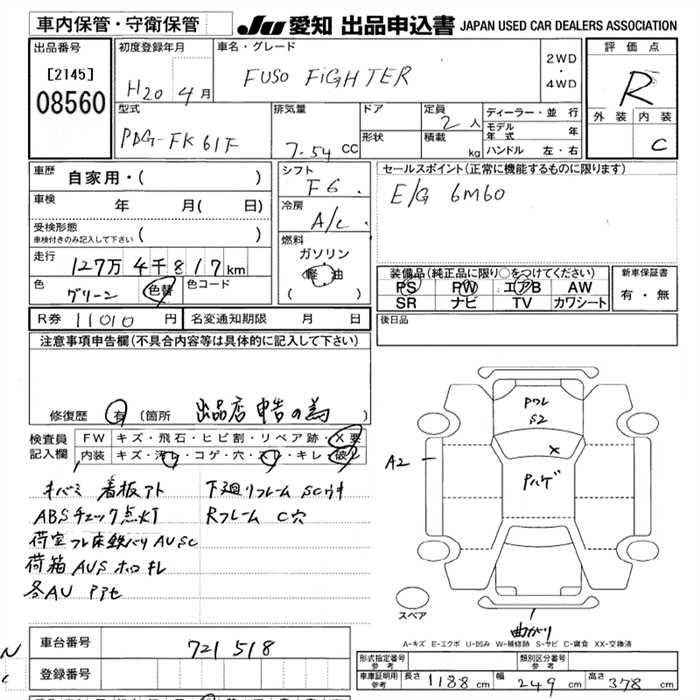 車内保管・守衛保管
JU 愛知 出品申込書 JAPAN USED CAR DEALERS ASSOCIATION
出品番号
[2145]
08560
初度登録年月
H20 4月
車名・グレード
FUSO FiGHTER
2WD
・
4WD
評価点
R
外装 内装
C
型式
PDG-FK61F
排気量
7.54 CC
ドア
形状
定員
2人
積載
kg
ディーラー・並行
モデル年式 年
ハンドル 左・右
車歴 自家用・( )
車検 年 月( 日)
受検形態
車検付きのみ記入して下さい ( )
走行 127万4千817km
色 グリーン 色替 色コード
R券 11010円 名変通知期限 月 日
シフト
F6.
冷房
A/C.
燃料
ガソリン
軽油
( )
セールスポイント(正常に機能するものに限ります)
E/G 6M60
装備品(純正品に限り○をつけてください)
PS PW エアB AW
SR ナビ TV カワシート
新車保証書
有・無
後日品
注意事項申告欄(不具合内容等は具体的に記入して下さい)
修復歴 有 (箇所 出品店申告の為 )
検査員記入欄
FW キズ・飛石・ヒビ割・リペア跡・X要
内装 キズ・汚れ・コゲ・穴・スレ・キレ・破れ
看板アト
下廻りフレーム SCサキ
ABSチェック点灯
Rフレーム C穴
荷箱 AUS
各AU
PワレS2
X
Pハゲ
A2
スペア
曲がり
A-キズ E-エクボ U-凹み W-補修跡 S-サビ C-腐食 XX-交換済
車台番号 721518
登録番号
形式指定番号 参考
類別区分番号 参考
車庫証明用 参考 長さ 1188cm 幅 249cm 高さ 378cm